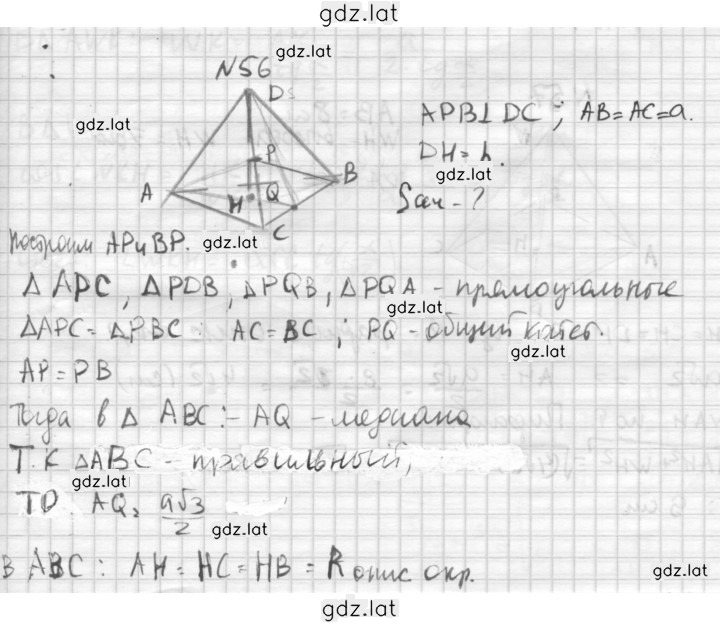 gdz.lat
N56
gdz.lat
D
gdz.lat
APB⊥DC ; AB=AC=a.
DH=h.
gdz.lat
Sсеч-?
P
A
B
H
Q
C
Построим AP и BP.
gdz.lat
Δ APC, Δ PDB, Δ PQB, Δ PQA - прямоугольные
gdz.lat
ΔAPC = ΔPBC : AC=BC ; PQ - общий катет.
gdz.lat
AP=PB
Тогда в Δ ABC:- AQ - медиана
Т.к ΔABC - правильный,
gdz.lat
ТО AQ= a√3/2
gdz.lat
В ABC: AH=HC=HB=R опис окр.
gdz.lat
gdz.lat